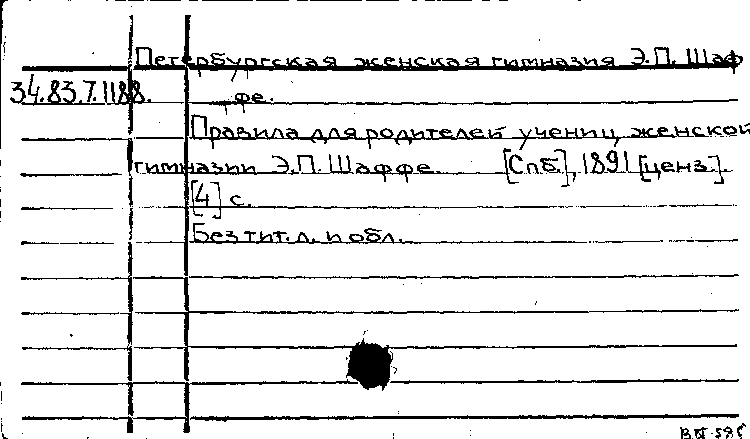 Петербургская женская гимназия Э.П. Шаф
34.83.7.1188. фе.
Правила для родителей учениц женской
гимназии Э.П. Шаффе. [Спб.], 1891 [ценз.].
[4] с.
Без тит. л. и обл.